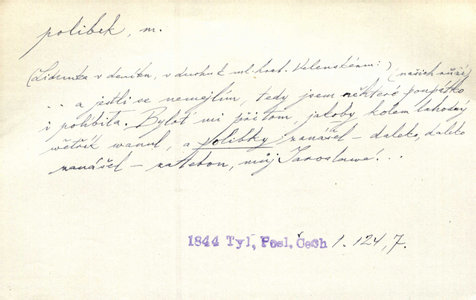 polibek, m.
(Lidunka v deníku, v duchu k ml. hrab. Valenskému:) (našich růží)
.. a jestli se nemejlím, tedy jsem některé poupátko
i políbila. Byloť mi při tom, jakoby kolem lahodný
větřík wanul, a polibky zanášel – daleko, daleko
zanášel – za tebou, můj Jaroslawe! ..
1844 Tyl, Posl. Čech 1. 124, 7.